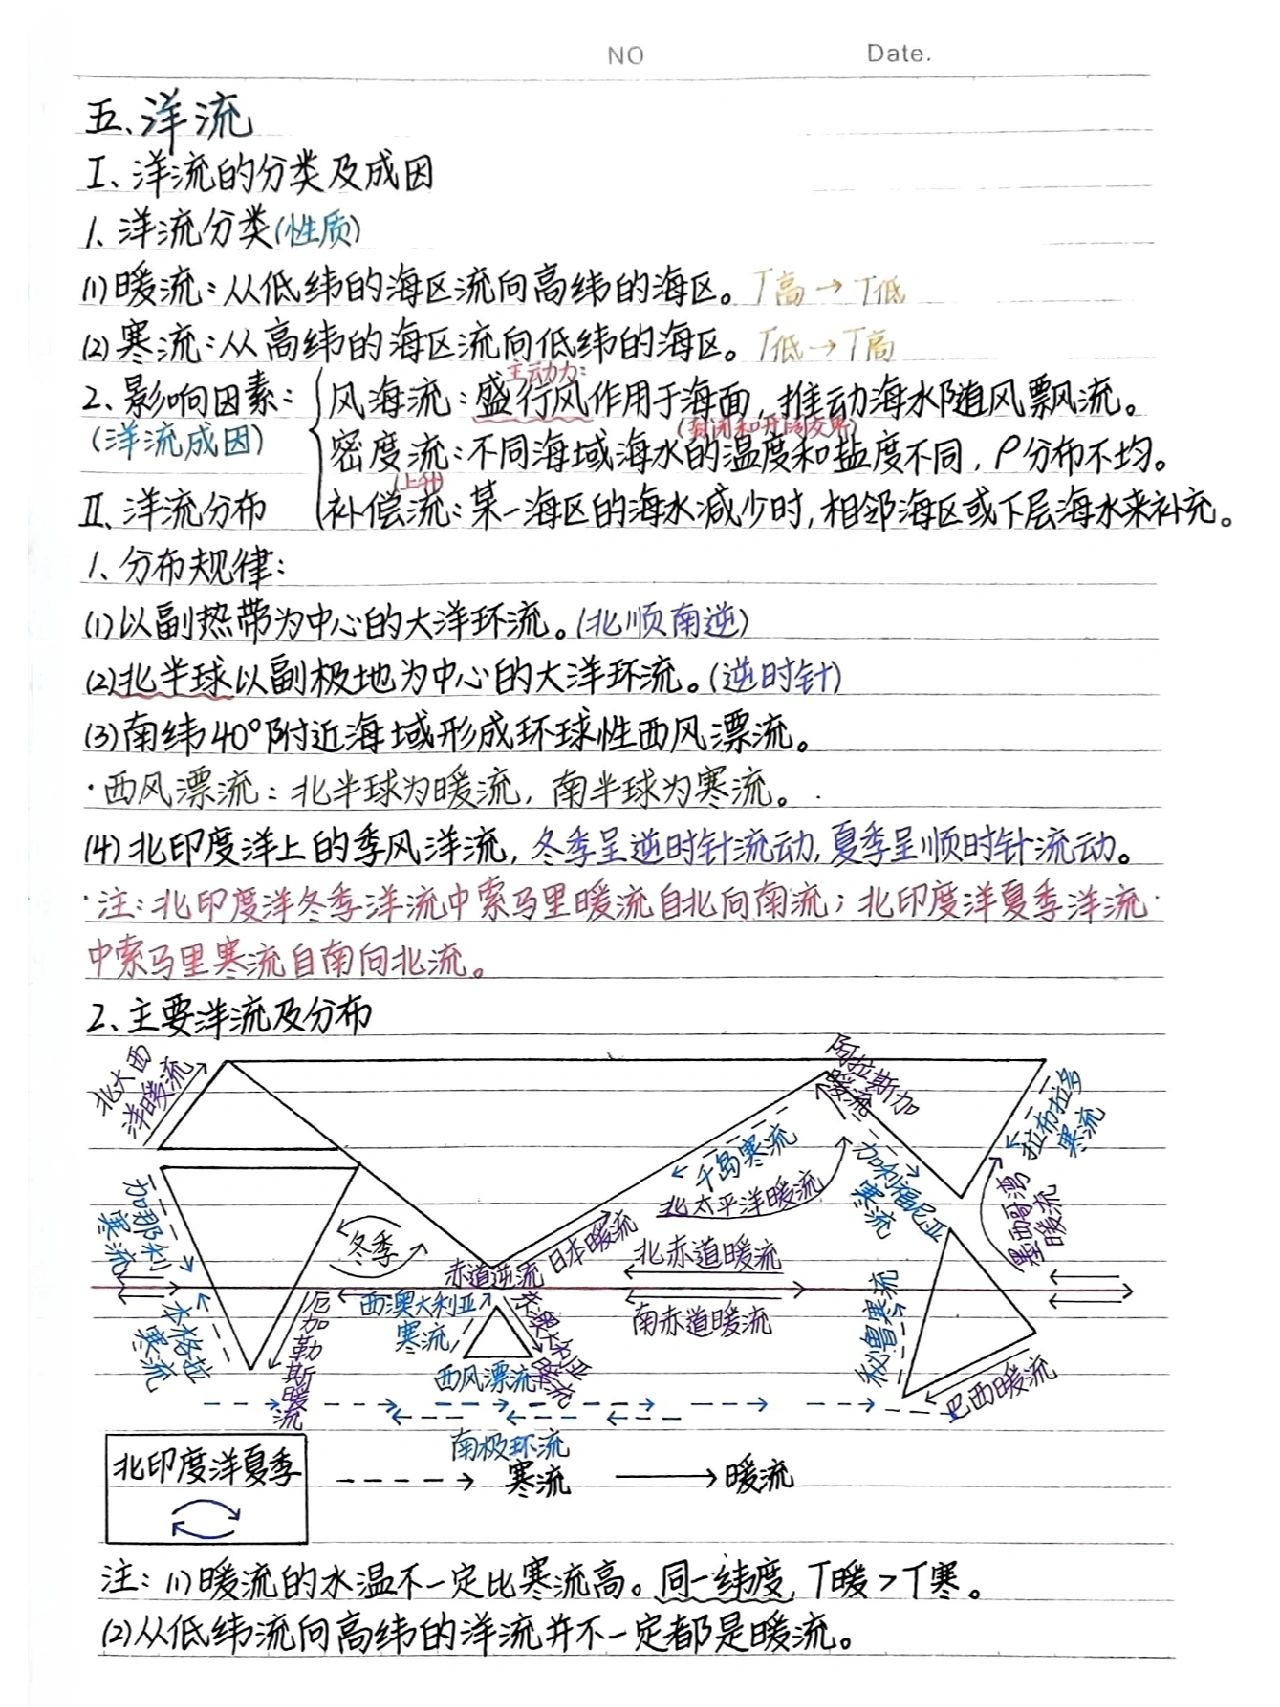 NO Date.
五、洋流
I、洋流的分类及成因
1、洋流分类(性质)
(1)暖流:从低纬的海区流向高纬的海区。T高→T低
(2)寒流:从高纬的海区流向低纬的海区。T低→T高
主动力:
2、影响因素:风海流:盛行风作用于海面,推动海水随风飘流。
(封闭和开阔交界)
(洋流成因) 密度流:不同海域海水的温度和盐度不同,ρ分布不均。
(上升)
II、洋流分布 补偿流:某一海区的海水减少时,相邻海区或下层海水来补充。
1、分布规律:
(1)以副热带为中心的大洋环流。(北顺南逆)
(2)北半球以副极地为中心的大洋环流。(逆时针)
(3)南纬40°附近海域形成环球性西风漂流。
·西风漂流:北半球为暖流,南半球为寒流。
(4)北印度洋上的季风洋流,冬季呈逆时针流动,夏季呈顺时针流动。
·注:北印度洋冬季洋流中索马里暖流自北向南流;北印度洋夏季洋流
中索马里寒流自南向北流。
2、主要洋流及分布
北大西
洋暖流
阿拉斯加
暖流
拉布拉多
寒流
千岛寒流
北太平洋暖流
加利福尼亚
寒流
墨西哥湾
暖流
加那利
寒流
冬季
赤道逆流
日本暖流
北赤道暖流
本格拉
寒流
厄加勒斯暖流
西澳大利亚
寒流
东澳大利亚
暖流
南赤道暖流
秘鲁寒流
西风漂流
巴西暖流
南极环流
北印度洋夏季
寒流 暖流
注:(1)暖流的水温不一定比寒流高。同一纬度,T暖>T寒。
(2)从低纬流向高纬的洋流并不一定都是暖流。